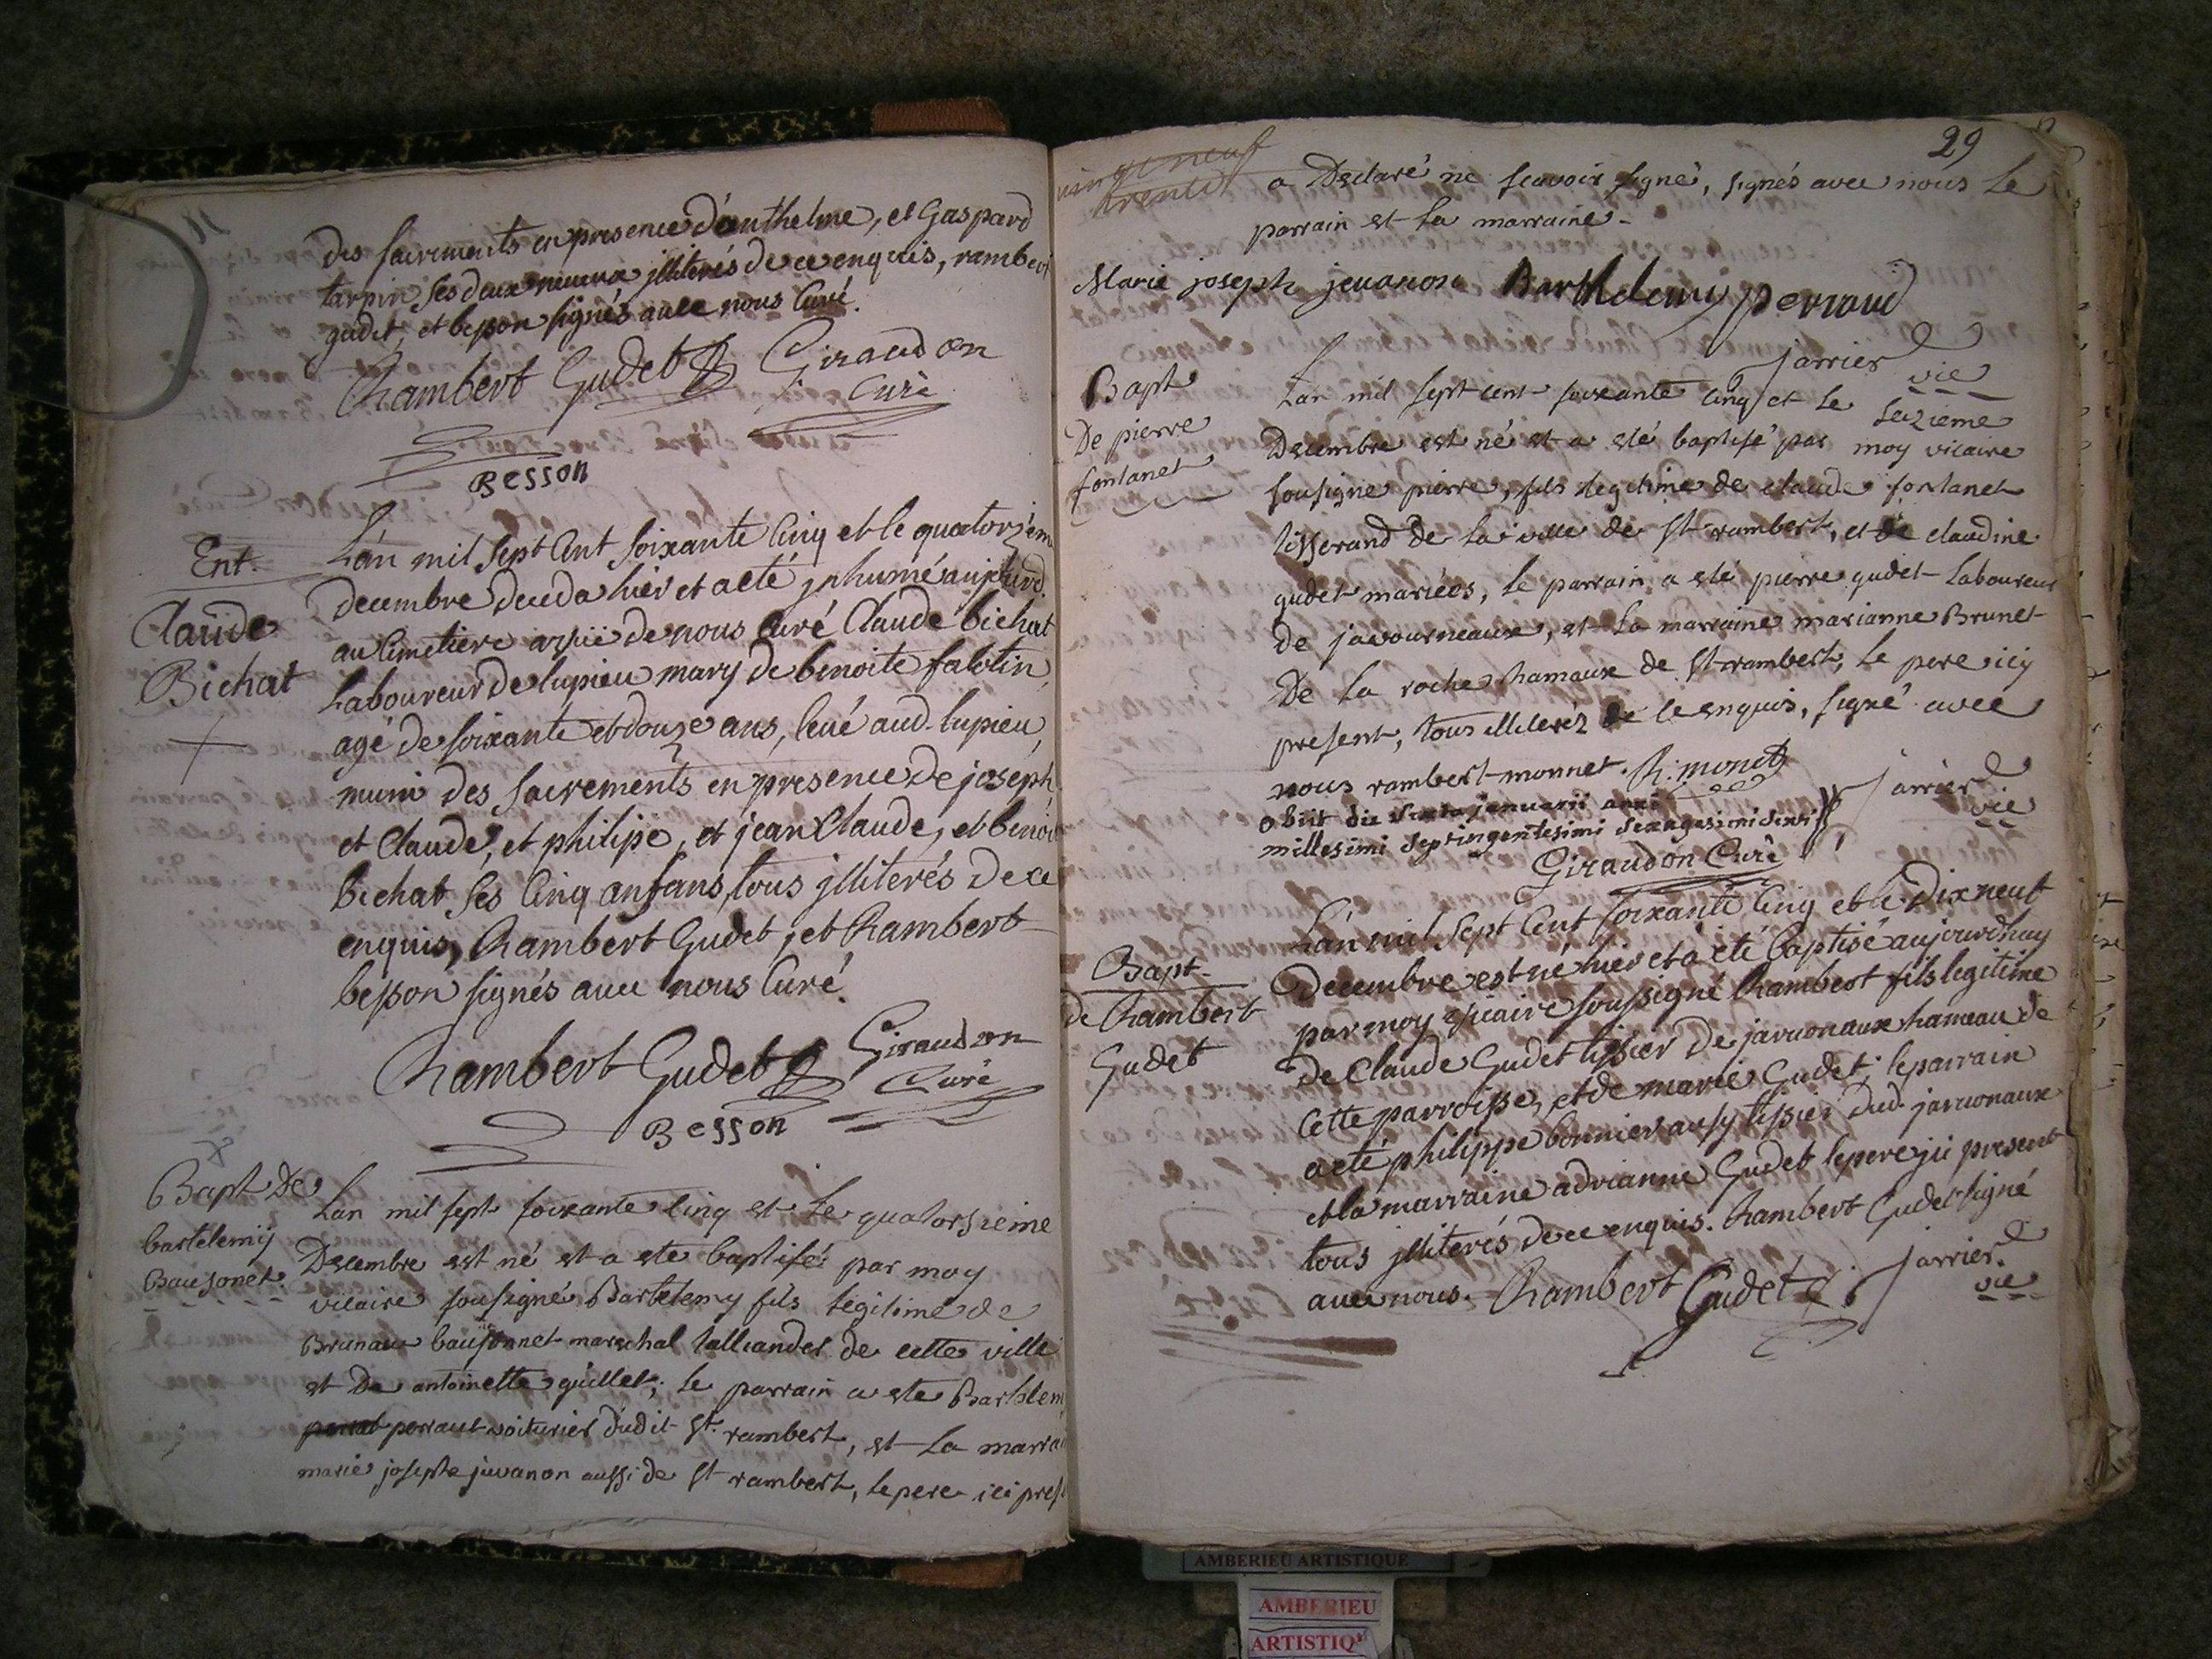 des sacrements en presence d'anthelme, et Gaspard
tarpin ses deux neveux jlliterés de ce enquis, rambert
gudet, et besson signés avec nous Curé.
Rambert Gudet Giraudon
Curé
Besson
Ent.
Claude
Bichat
L'an mil sept Cent soixante Cinq et le quatorzieme
decembre deceda hier et a eté jnhumé aujourd.
au Cimetiere de nous Curé Claude bichat
Laboureur de lupieu mary de benoite falotin,
agé de soixante et douze ans, levé aud. lupieu,
muni des sacrements en presence de joseph,
et Claude, et philipe, et jean Claude, et benoit
bichat ses Cinq enfans, tous jlliterés de ce
enquis, Rambert Gudet, et Rambert
besson signés avec nous Curé.
Rambert Gudet Giraudon
Curé
Besson
Bapt De
bartelemy
Bausonet.
Lan mil sept soixante cinq et le quatorsieme
Decembre est né et a eté baptisé par moy
vicaire sousigné Bartelemy fils legitime de
bausonnet mareschal talliander de cette ville
et De antoinette guillet; le parrain a ete Barthlemy
perraut voiturier dudit St. rambert, et la marrai
marie josephe juvanon aussi de St rambert, le pere ici prest
29
vingt neuf
trente
a Declaré ne scavoir signé, signés avec nous le
parrain et la marraine.
Marie joseph jeuanon Barthelemy perraud
jarrier
vic
Bapt
De pierre
fontanet
Lan mil sept cent soixante cinq et le seizieme
Decembre est né et a eté baptisé par moy vicaire
sousigné pierre, fils legitime de claude fontanet
tisserand de la ville de St rambert, et de claudine
gudet mariées, le parrain a eté pierre gudet Laboureur
de javourneaux, et la marraine marianne Brunet
De la roche hamaux de St rambert, le pere icy
present, tous illiterez de ce enquis, signé avec
nous rambert monnet. R: monet
jarrier
vic
obiit die sexta januarii anni
millesimi septingentesimi sexagesimi sexti
Giraudon Curé
Bapt.
de Rambert
Gudet
L'an mil sept Cent soixante Cinq et le Dixneuf
Decembre est né hier et a eté baptisé aujourdhuy
par moy vicaire soussigné Rambert fils legitime
de Claude Gudet tissier De javronaux hameau de
Cette parroisse, et de marie Gudet; le parrain
a eté philippe bonnier aussy tissier dud. javronaux
et la marraine adrianne Gudet le pere jci present
tous jlliterés de ce enquis. Rambert Gudet signé
avec nous. Rambert Gudet
jarrier.
vic
AMBERIEU ARTISTIQUE
AMBERIEU
ARTISTIQ